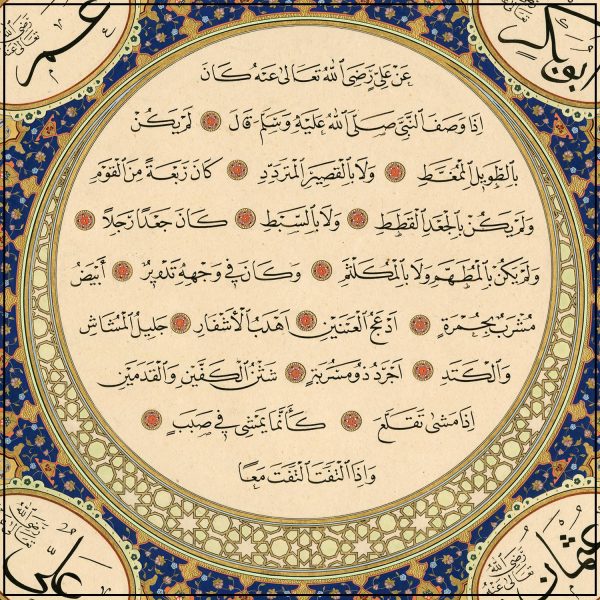 ابوبكر
رضي الله تعالى عنه
عمر
رضي الله تعالى عنه
عَنْ عَلِيٍّ رَضِيَ اللّٰهُ تَعَالٰى عَنْهُ كَانَ
اِذَا وَصَفَ النَّبِيَّ صَلَّى اللّٰهُ عَلَيْهِ وَسَلَّمَ قَالَ لَمْ يَكُنْ
بِالطَّوِيلِ الْمُمَّغِطِ وَلَا بِالْقَصِيرِ الْمُتَرَدِّدِ كَانَ رَبْعَةً مِنَ الْقَوْمِ
وَلَمْ يَكُنْ بِالْجَعْدِ الْقَطَطِ وَلَا بِالسَّبْطِ كَانَ جَعْدًا رَجِلًا
وَلَمْ يَكُنْ بِالْمُطَهَّمِ وَلَا بِالْمُكَلْثَمِ وَكَانَ فِي وَجْهِهِ تَدْوِيرٌ أَبْيَضُ
مُشْرَبٌ بِحُمْرَةٍ اَدْعَجُ الْعَيْنَيْنِ اَهْدَبُ الْأَشْفَارِ جَلِيلُ الْمُشَاشِ
وَالْكَتَدِ اَجْرَدُ ذُو مَسْرُبَةٍ شَثْنُ الْكَفَّيْنِ وَالْقَدَمَيْنِ
اِذَا مَشٰى تَقَلَّعَ كَأَنَّمَا يَمْشِي فِي صَبَبٍ
وَاِذَا الْتَفَتَ الْتَفَتَ مَعًا
عثمان
رضي الله تعالى عنه
علي
رضي الله تعالى عنه